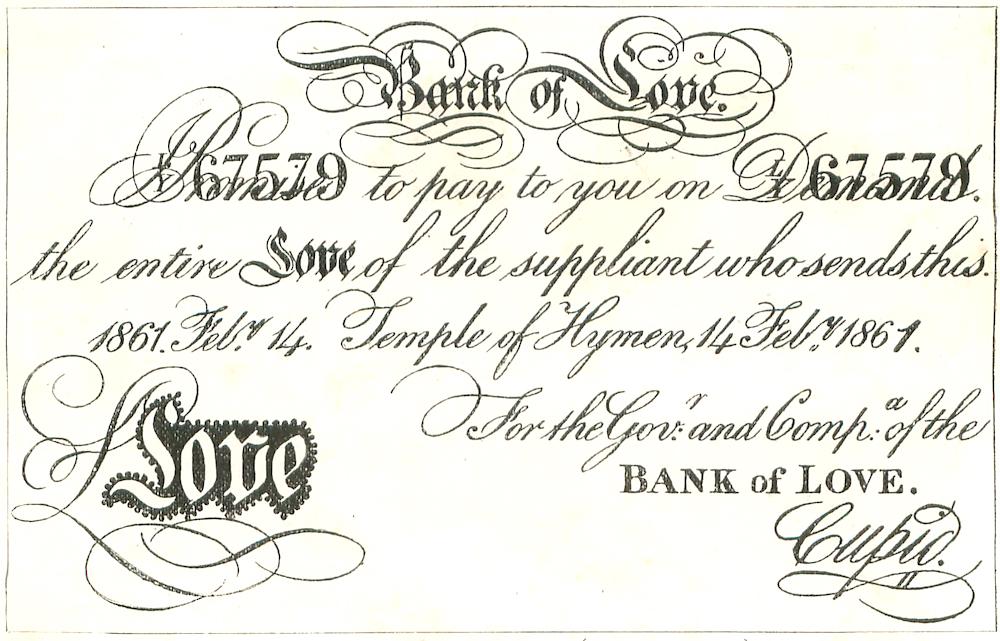 Bank of Love.
I Promise to pay to you on Demand.
£ 67579 £ 67579
the entire Love of the suppliant who sends this.
1861. Feb.ry 14. Temple of Hymen, 14 Feb.ry 1861.
For the Gov.r and Comp.a of the
Love
BANK of LOVE.
Cupid.